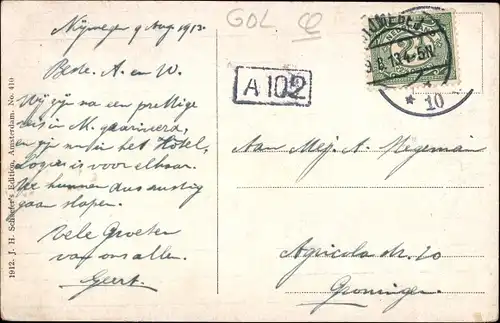 Nijmegen 9 Aug 1913.
Beste A. en W.
Wij zijn na een prettige
reis in M. gearriveerd,
en zijn in het Hotel,
Logies is voor elkaar.
We kunnen dus rustig
gaan slapen.
Vele Groeten
van ons allen.
Geert.
1912. J. H. Schaefer's Edition, Amsterdam. No. 410
GOL
A 102
NIJMEGEN
8.13 4-5N
10
2½
Aan Mej. A. Wegeman
Agricolastr. 20
Groningen